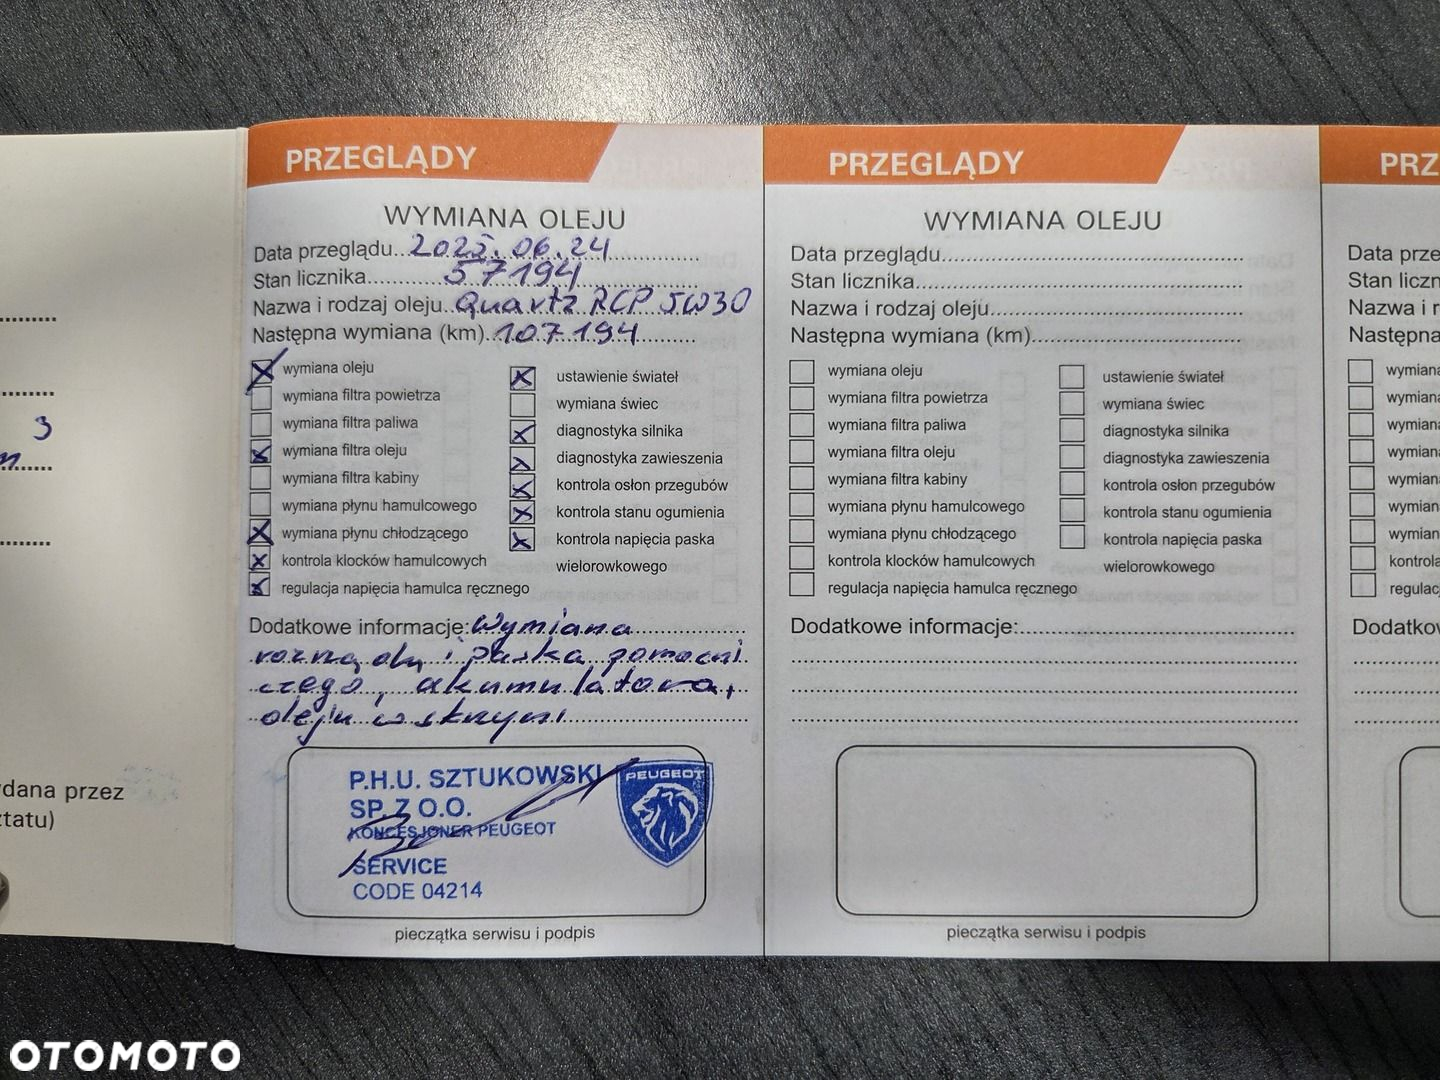 3
m
dana przez
ztatu)
PRZEGLĄDY
WYMIANA OLEJU
Data przeglądu 2025.06.24
Stan licznika 57194
Nazwa i rodzaj oleju Quartz RCP 5W30
Następna wymiana (km) 107194
wymiana oleju
wymiana filtra powietrza
wymiana filtra paliwa
wymiana filtra oleju
wymiana filtra kabiny
wymiana płynu hamulcowego
wymiana płynu chłodzącego
kontrola klocków hamulcowych
regulacja napięcia hamulca ręcznego
ustawienie świateł
wymiana świec
diagnostyka silnika
diagnostyka zawieszenia
kontrola osłon przegubów
kontrola stanu ogumienia
kontrola napięcia paska
wielorowkowego
Dodatkowe informacje: Wymiana
rozrządu i paska pomocni
czego, akumulatora,
oleju w skrzyni
P.H.U. SZTUKOWSKI
SP. Z O.O.
KONCESJONER PEUGEOT
SERVICE
CODE 04214
PEUGEOT
pieczątka serwisu i podpis
PRZEGLĄDY
WYMIANA OLEJU
Data przeglądu
Stan licznika
Nazwa i rodzaj oleju
Następna wymiana (km)
wymiana oleju
wymiana filtra powietrza
wymiana filtra paliwa
wymiana filtra oleju
wymiana filtra kabiny
wymiana płynu hamulcowego
wymiana płynu chłodzącego
kontrola klocków hamulcowych
regulacja napięcia hamulca ręcznego
ustawienie świateł
wymiana świec
diagnostyka silnika
diagnostyka zawieszenia
kontrola osłon przegubów
kontrola stanu ogumienia
kontrola napięcia paska
wielorowkowego
Dodatkowe informacje:
pieczątka serwisu i podpis
PRZ
Data prze
Stan liczn
Nazwa i r
Następna
wymiana
wymiana
wymiana
wymiana
wymiana
wymiana
wymiana
kontrola
regulac
Dodatkow
OTOMOTO